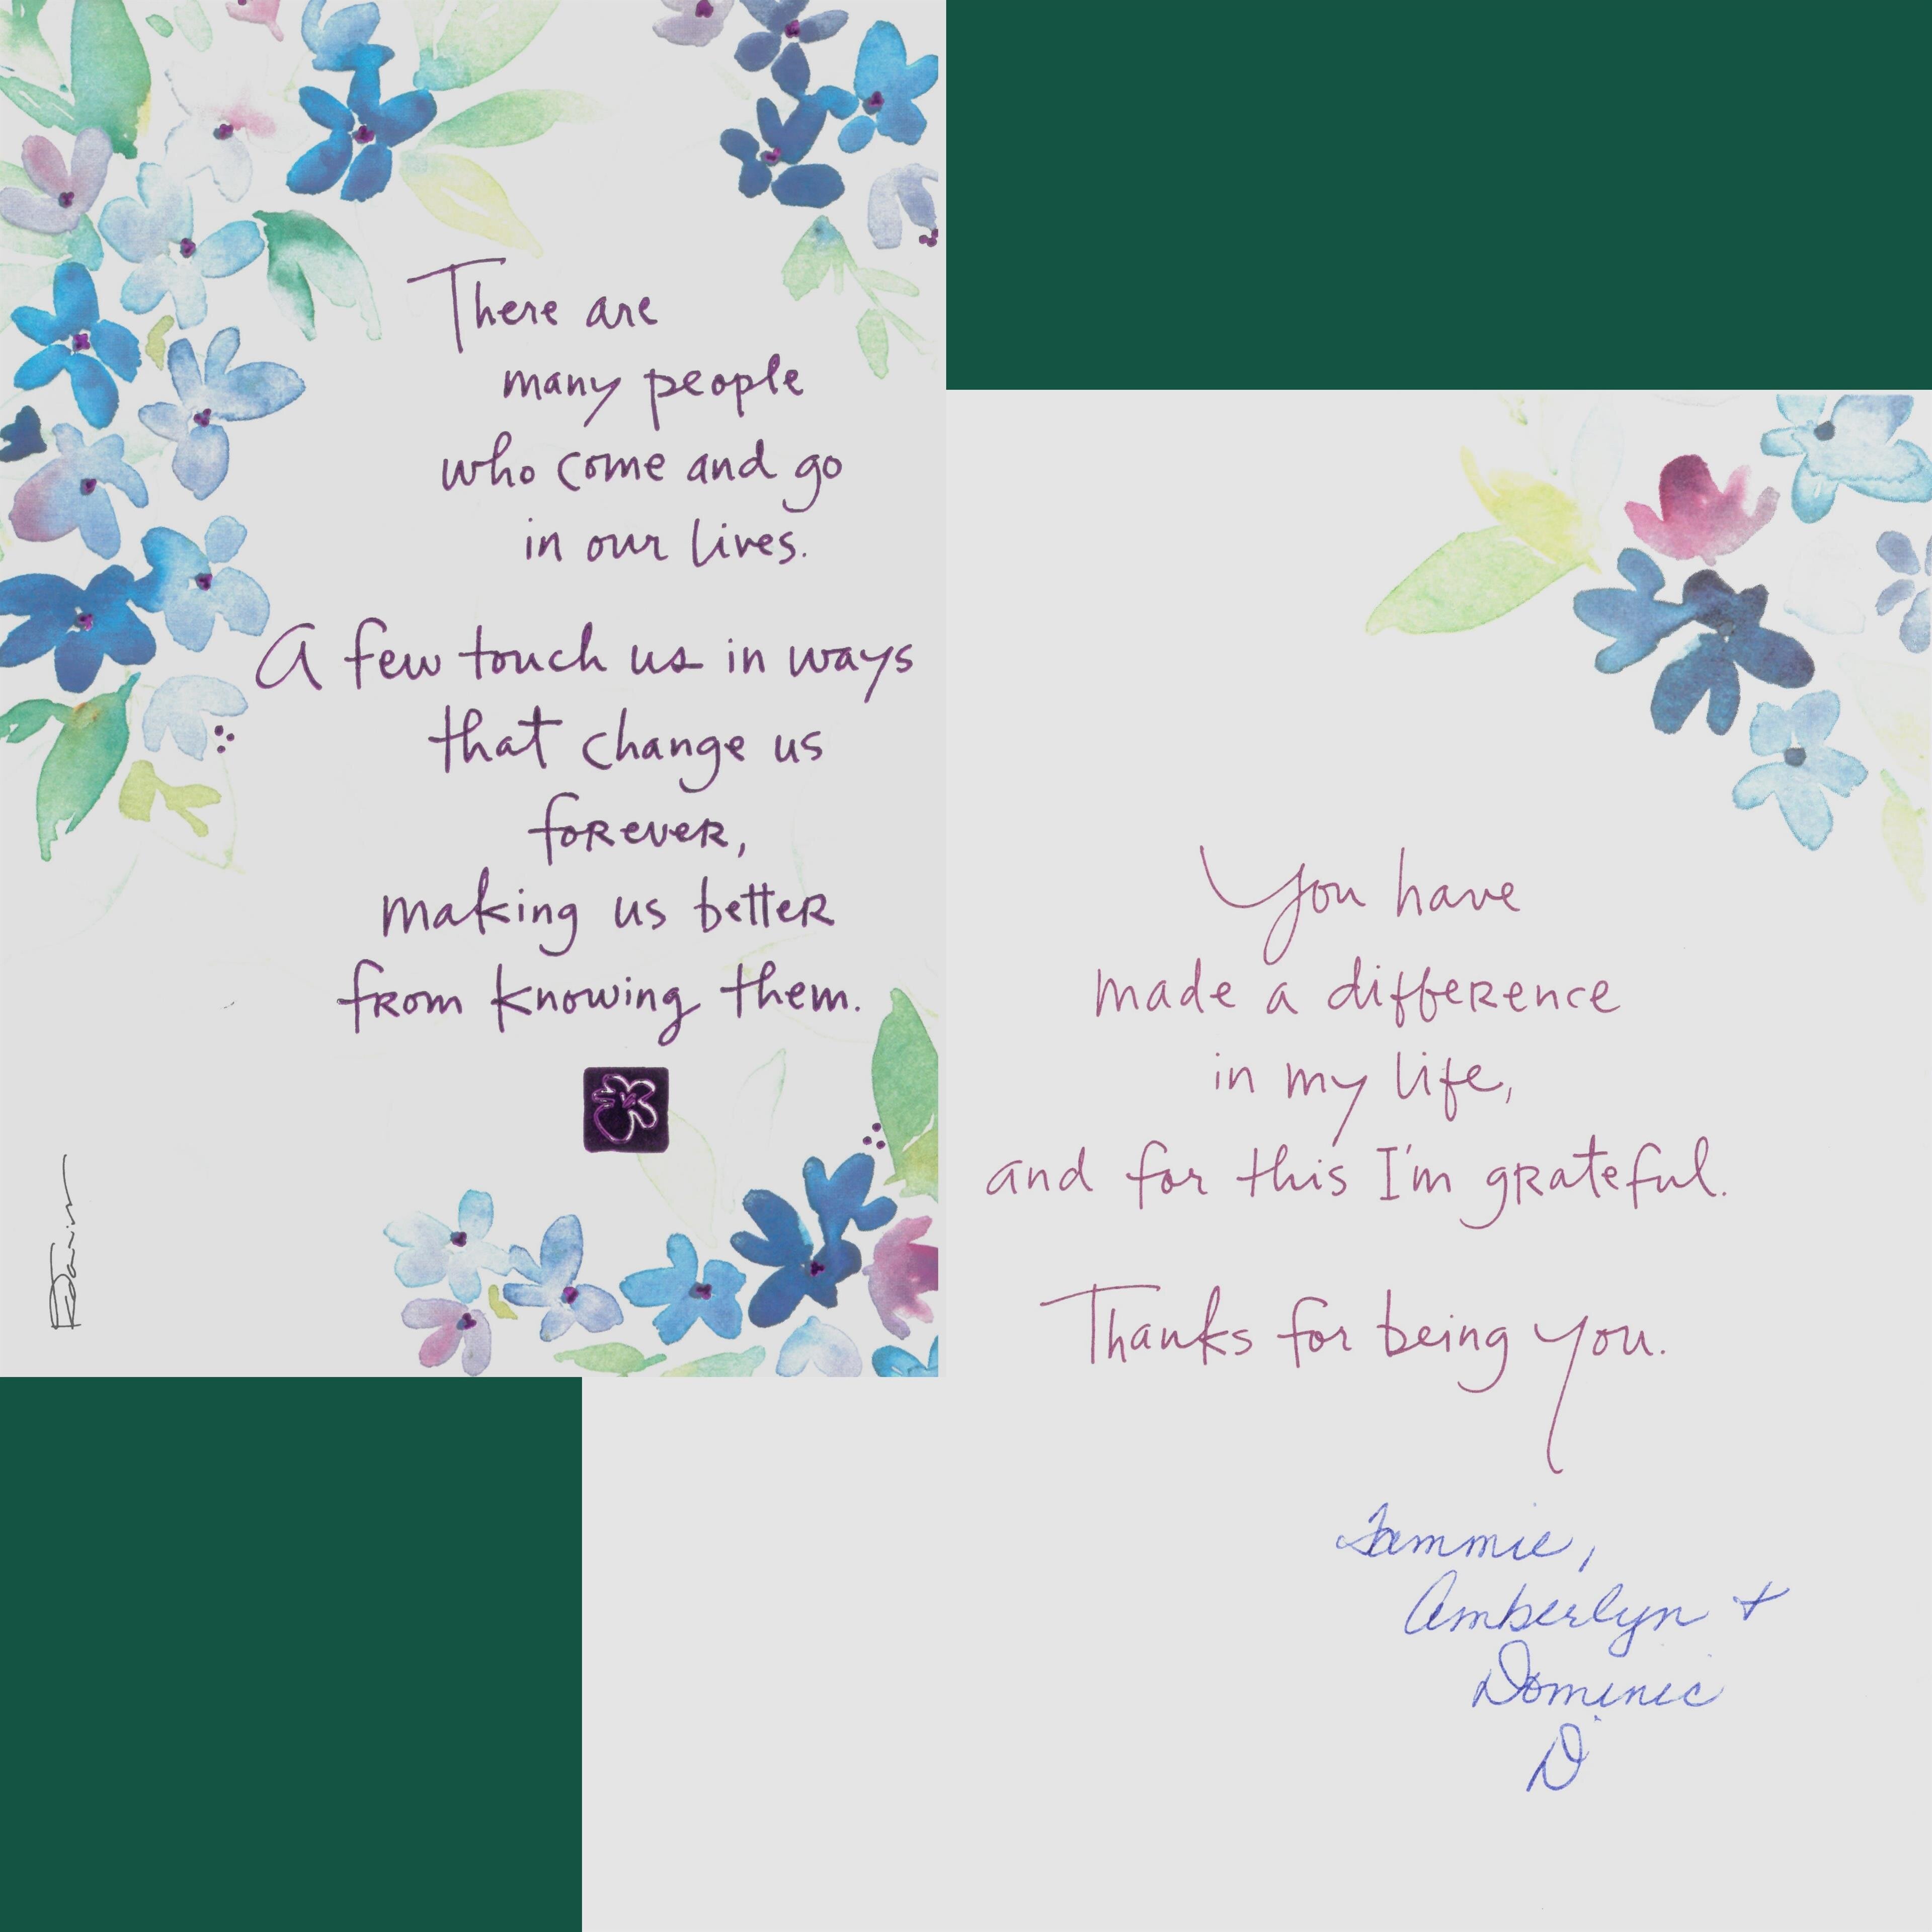 There are
many people
who come and go
in our lives.
A few touch us in ways
that change us
forever,
making us better
from knowing them.
You have
made a difference
in my life,
and for this I'm grateful.
Thanks for being you.
Tammie,
Amberlyn +
Dominic
D